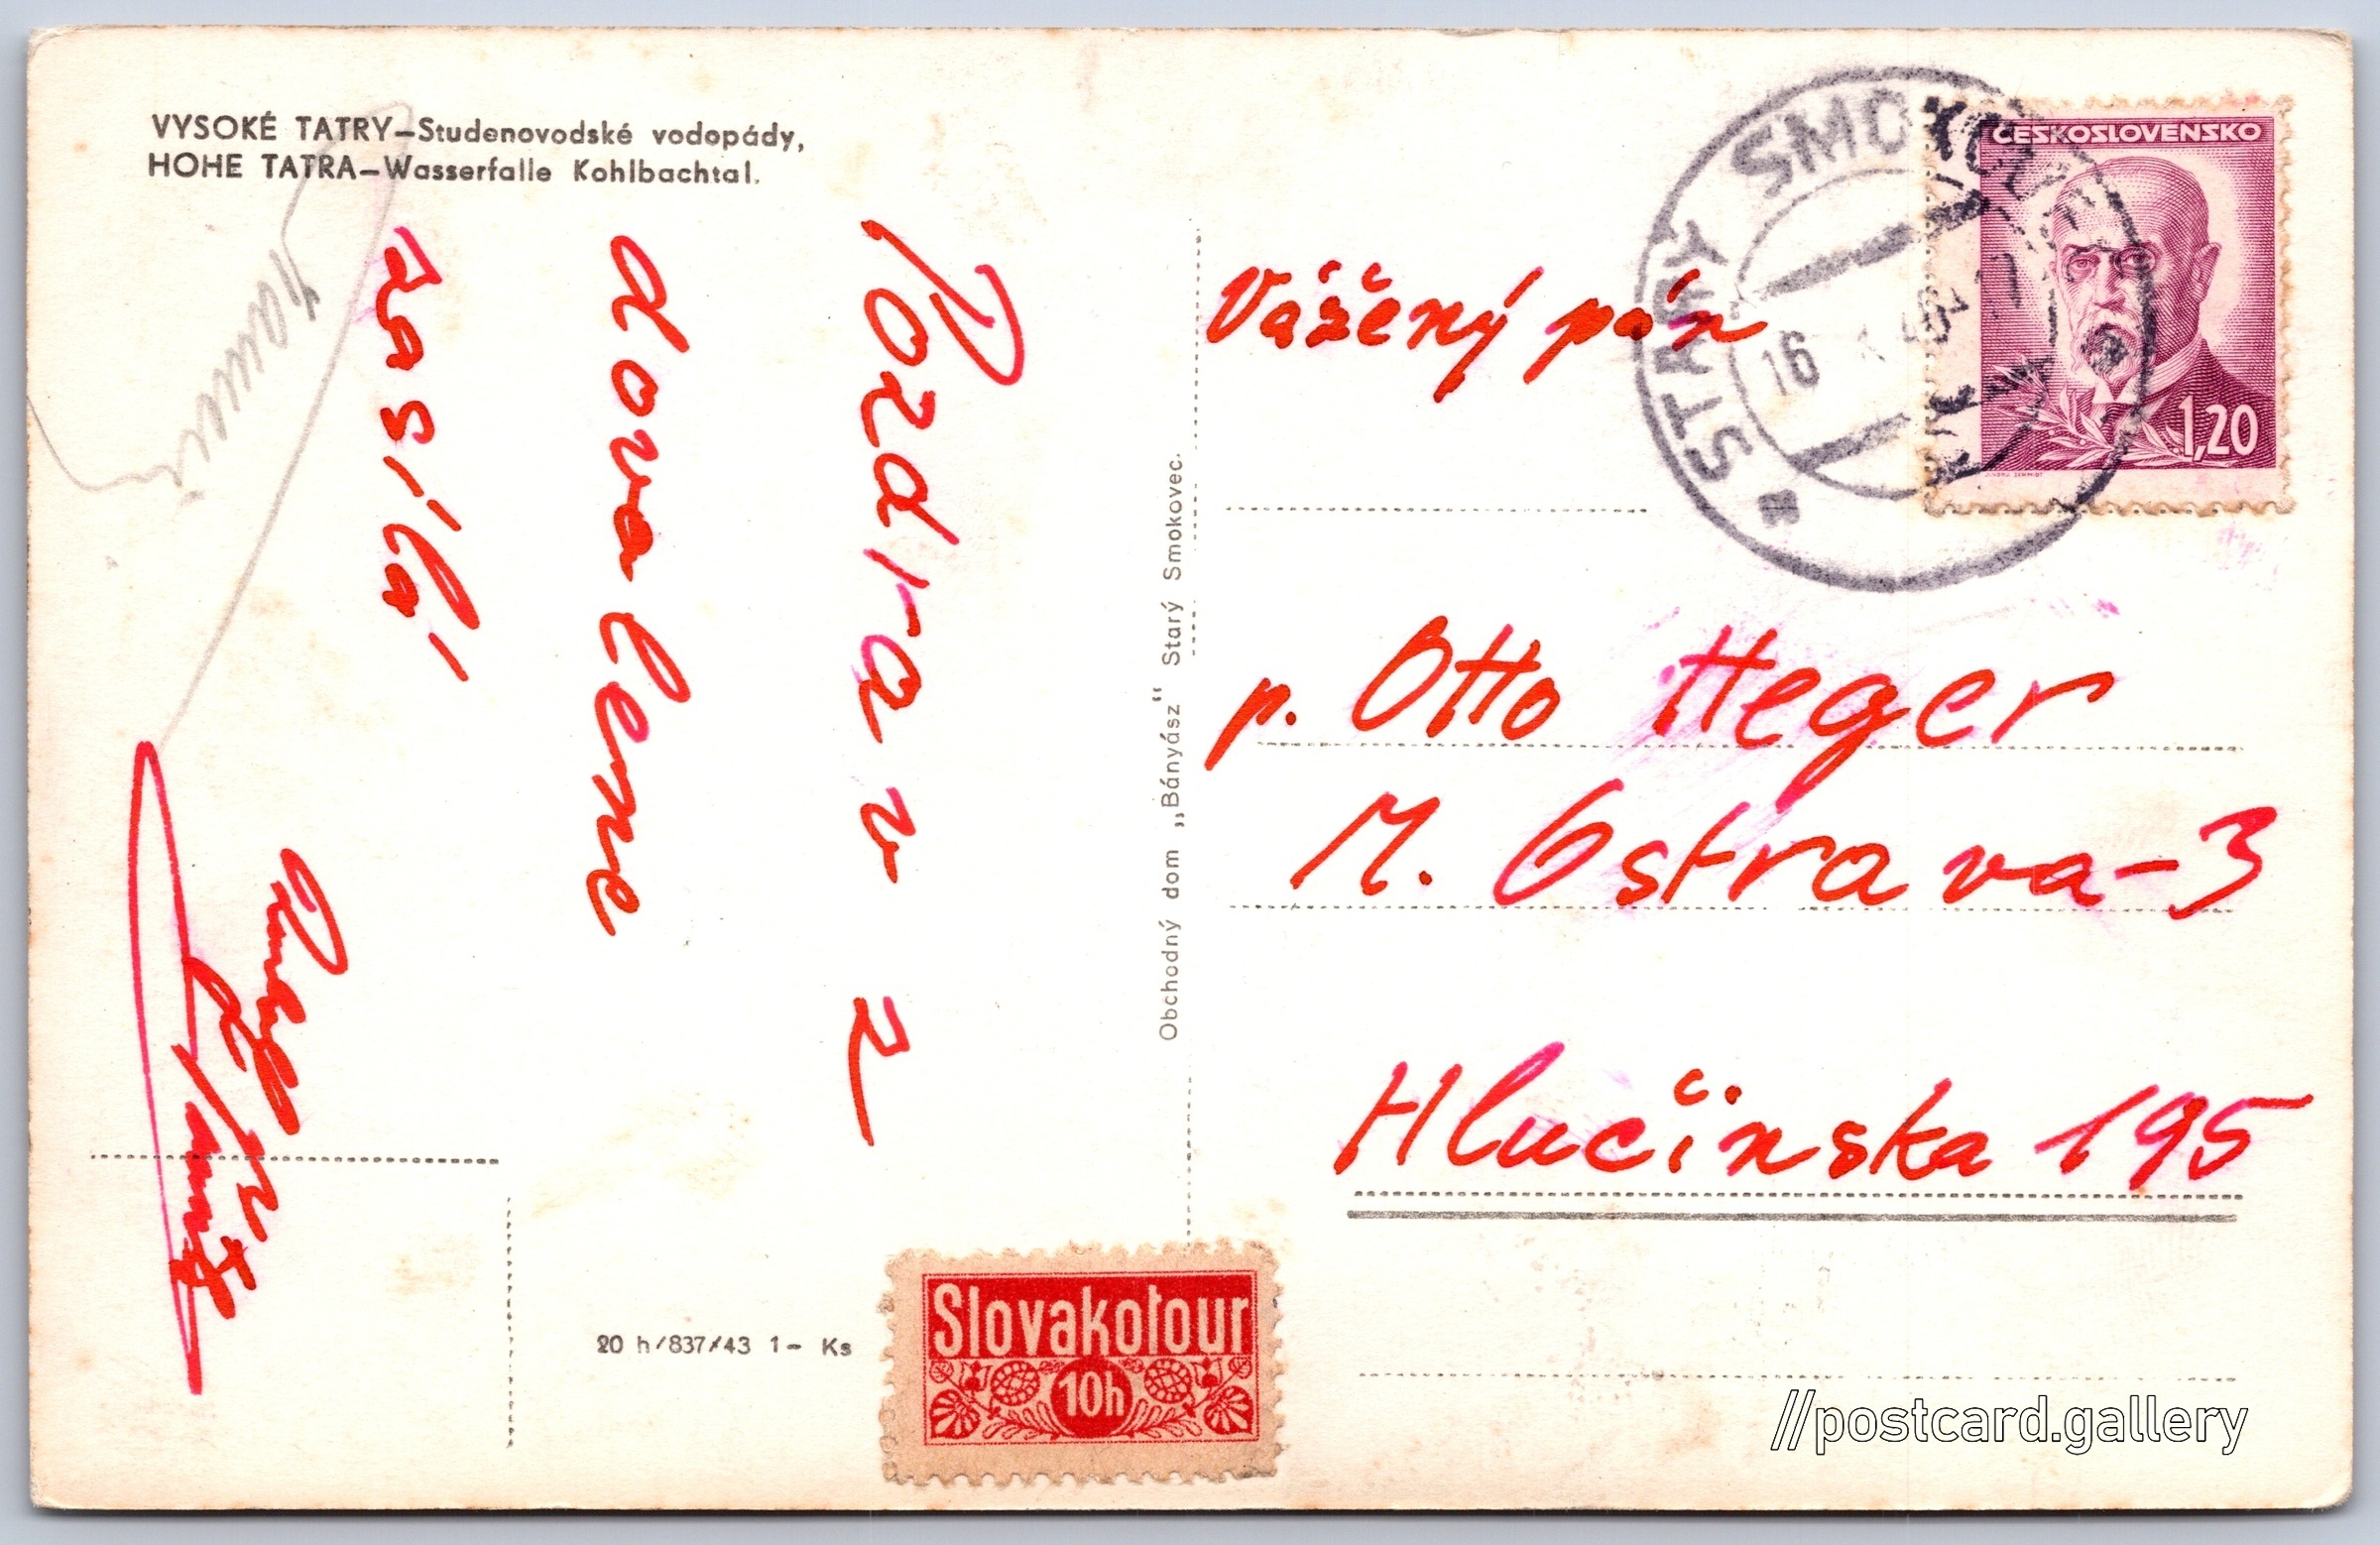 VYSOKÉ TATRY—Studenovodské vodopády,
HOHE TATRA—Wasserfalle Kohlbachtal.
Pozdrav z
dovolene
zasílá
Obchodný dom „Bányász“ Starý Smokovec.
20 h/837/43 1— Ks
Slovakotour
10h
STARÝ SMOKOVEC
16
46
ČESKOSLOVENSKO
1,20
JINDRA SCHMIDT
Vášený pán
p. Otto Heger
M. Ostrava-3
Hlučinska 195
//postcard.gallery